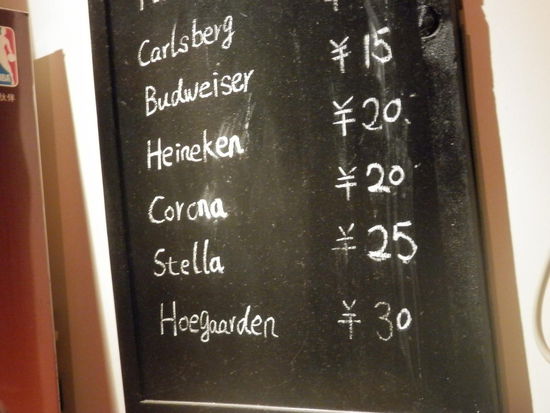 Carlsberg ¥15
Budweiser ¥20
Heineken ¥20
Corona ¥25
Stella
Hoegaarden ¥30
伙伴